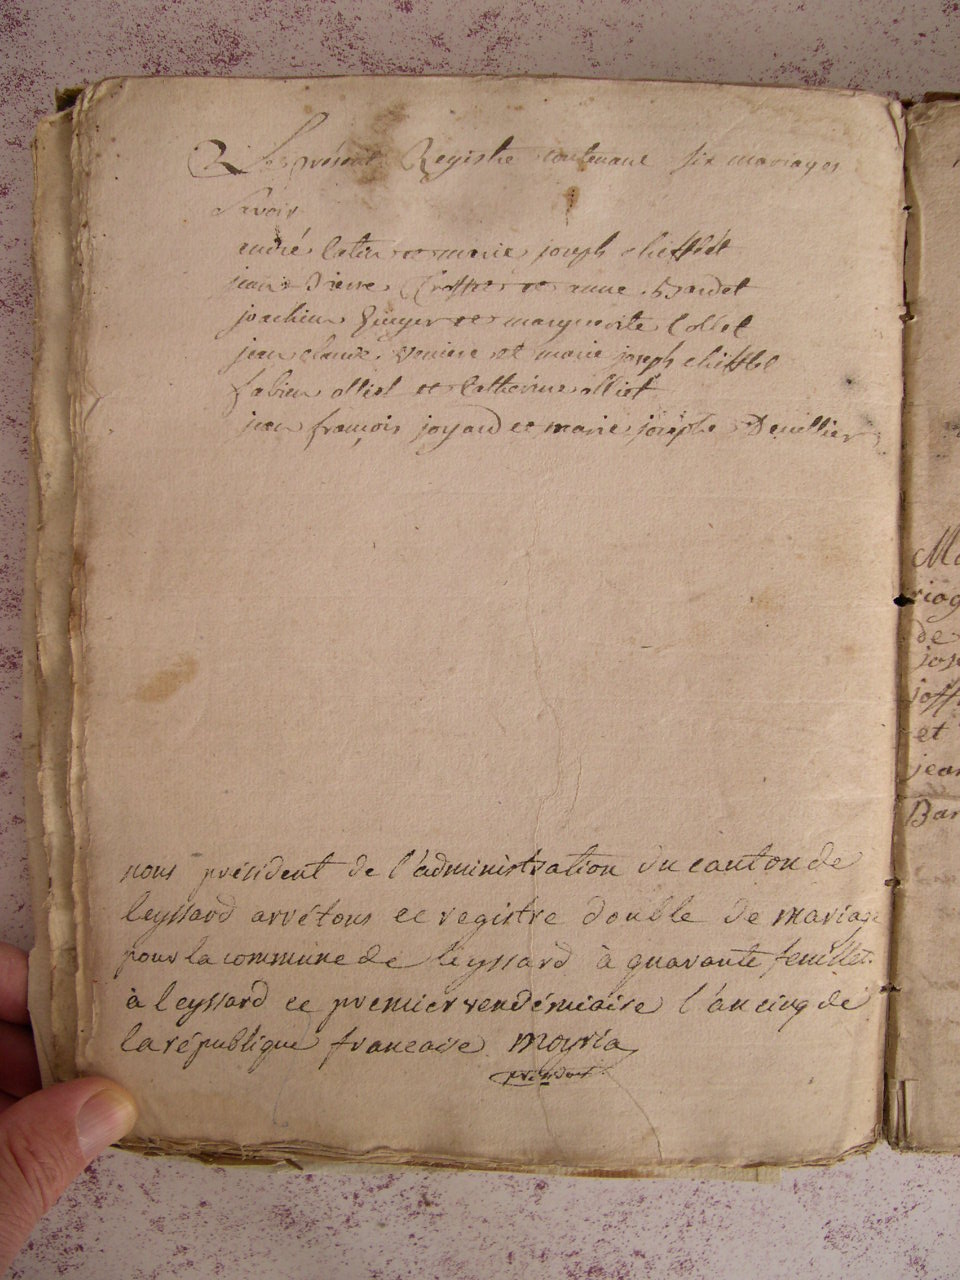 Le présent Registre contenant six mariages
Savoir
andré et marie joseph chifflet
jean Pierre et anne
joachim et marguerite Collet
jean claude et marie joseph chifflet
fabien olliet et Catherine olliet
jean françois joyard et marie josephe
nous président de l'administration du canton de
leyssard arrêtons ce registre double de mariage
pour la commune de leyssard à quarante feuillet.
à leyssard ce premier vendémiaire l'an cinq de
la république francaise moyria
président
Ma
riag
de
jos
joff
et
jean
Bar